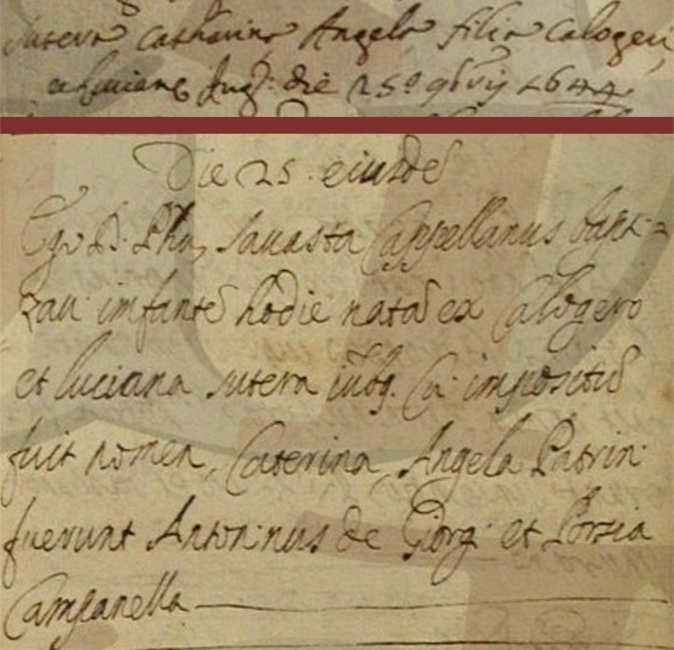 Sutera Catharina Angela filia Calogeri,
et Lucianę Jug: die 25º 9bris 1644
Die 25 eiusdē
Ego D. Phs Sauasta Cappellanus bapt=
zaui infantē hodie natā ex Calogero
et luciana sutera iugb. Cui impositū
fuit nomen, Caterina, Angela Patrin:
fuerunt Antoninus de Giorgi et Porsia
Campanella